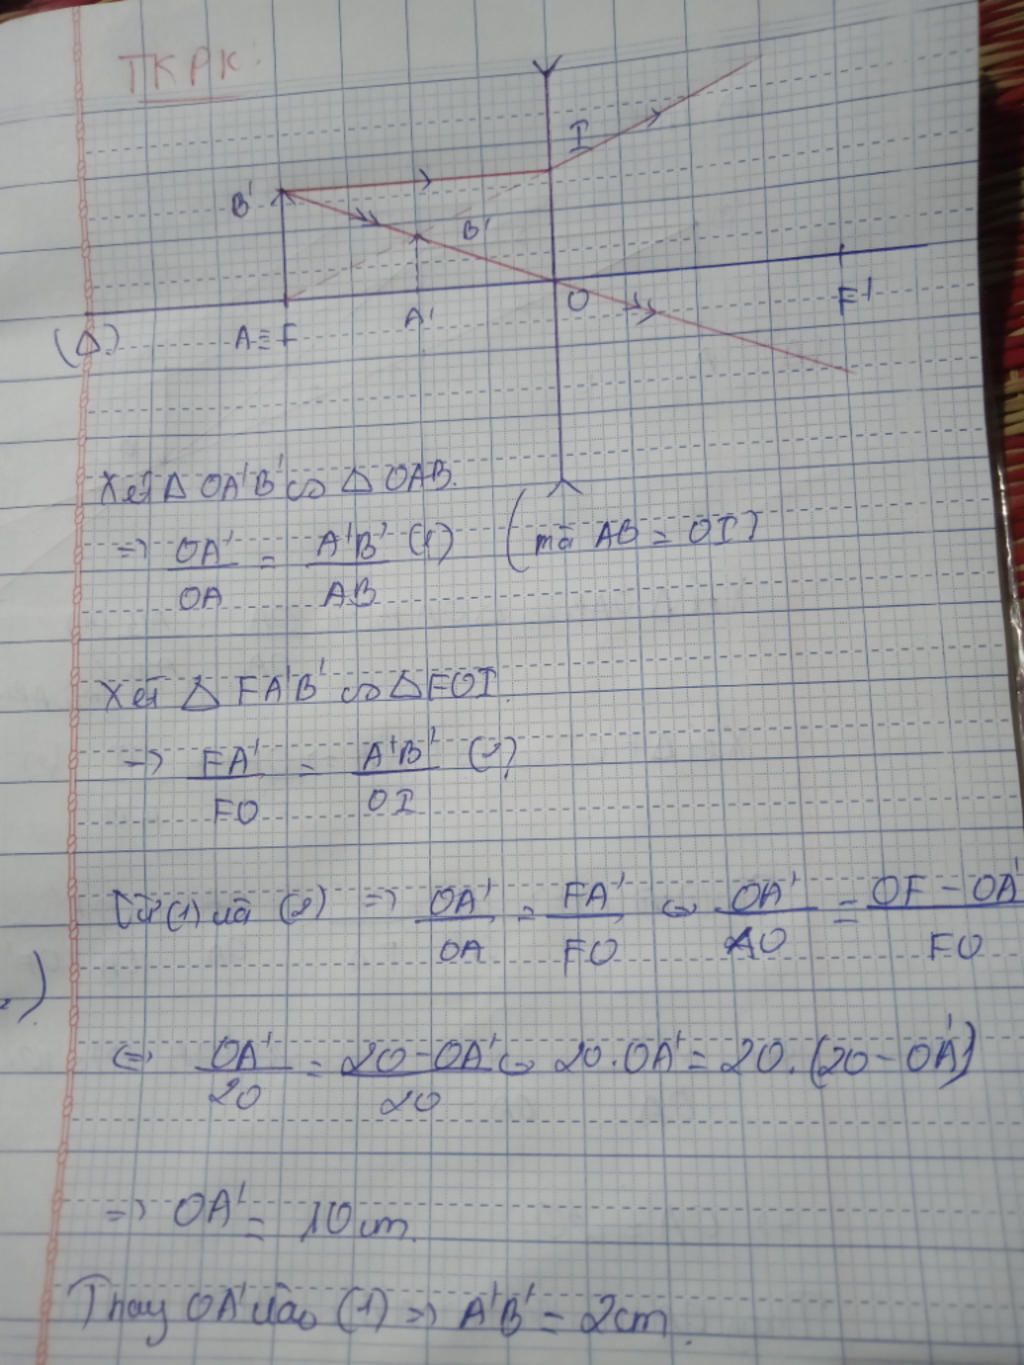 TKPK:
I
B'
B'
O
F'
A'
A≡F
(Δ)
Xét Δ OA'B' ∽ Δ OAB.
=> OA'/OA = A'B'/AB (1) (mà AB = OI)
Xét Δ FA'B' ∽ Δ FOI.
=> FA'/FO = A'B'/OI (2)
Từ (1) và (2) => OA'/OA = FA'/FO <=> OA'/AO = OF - OA'/FO
<=> OA'/20 = 20 - OA'/20 <=> 20.OA' = 20.(20 - OA')
=> OA' = 10 cm.
Thay OA' vào (1) => A'B' = 2cm.